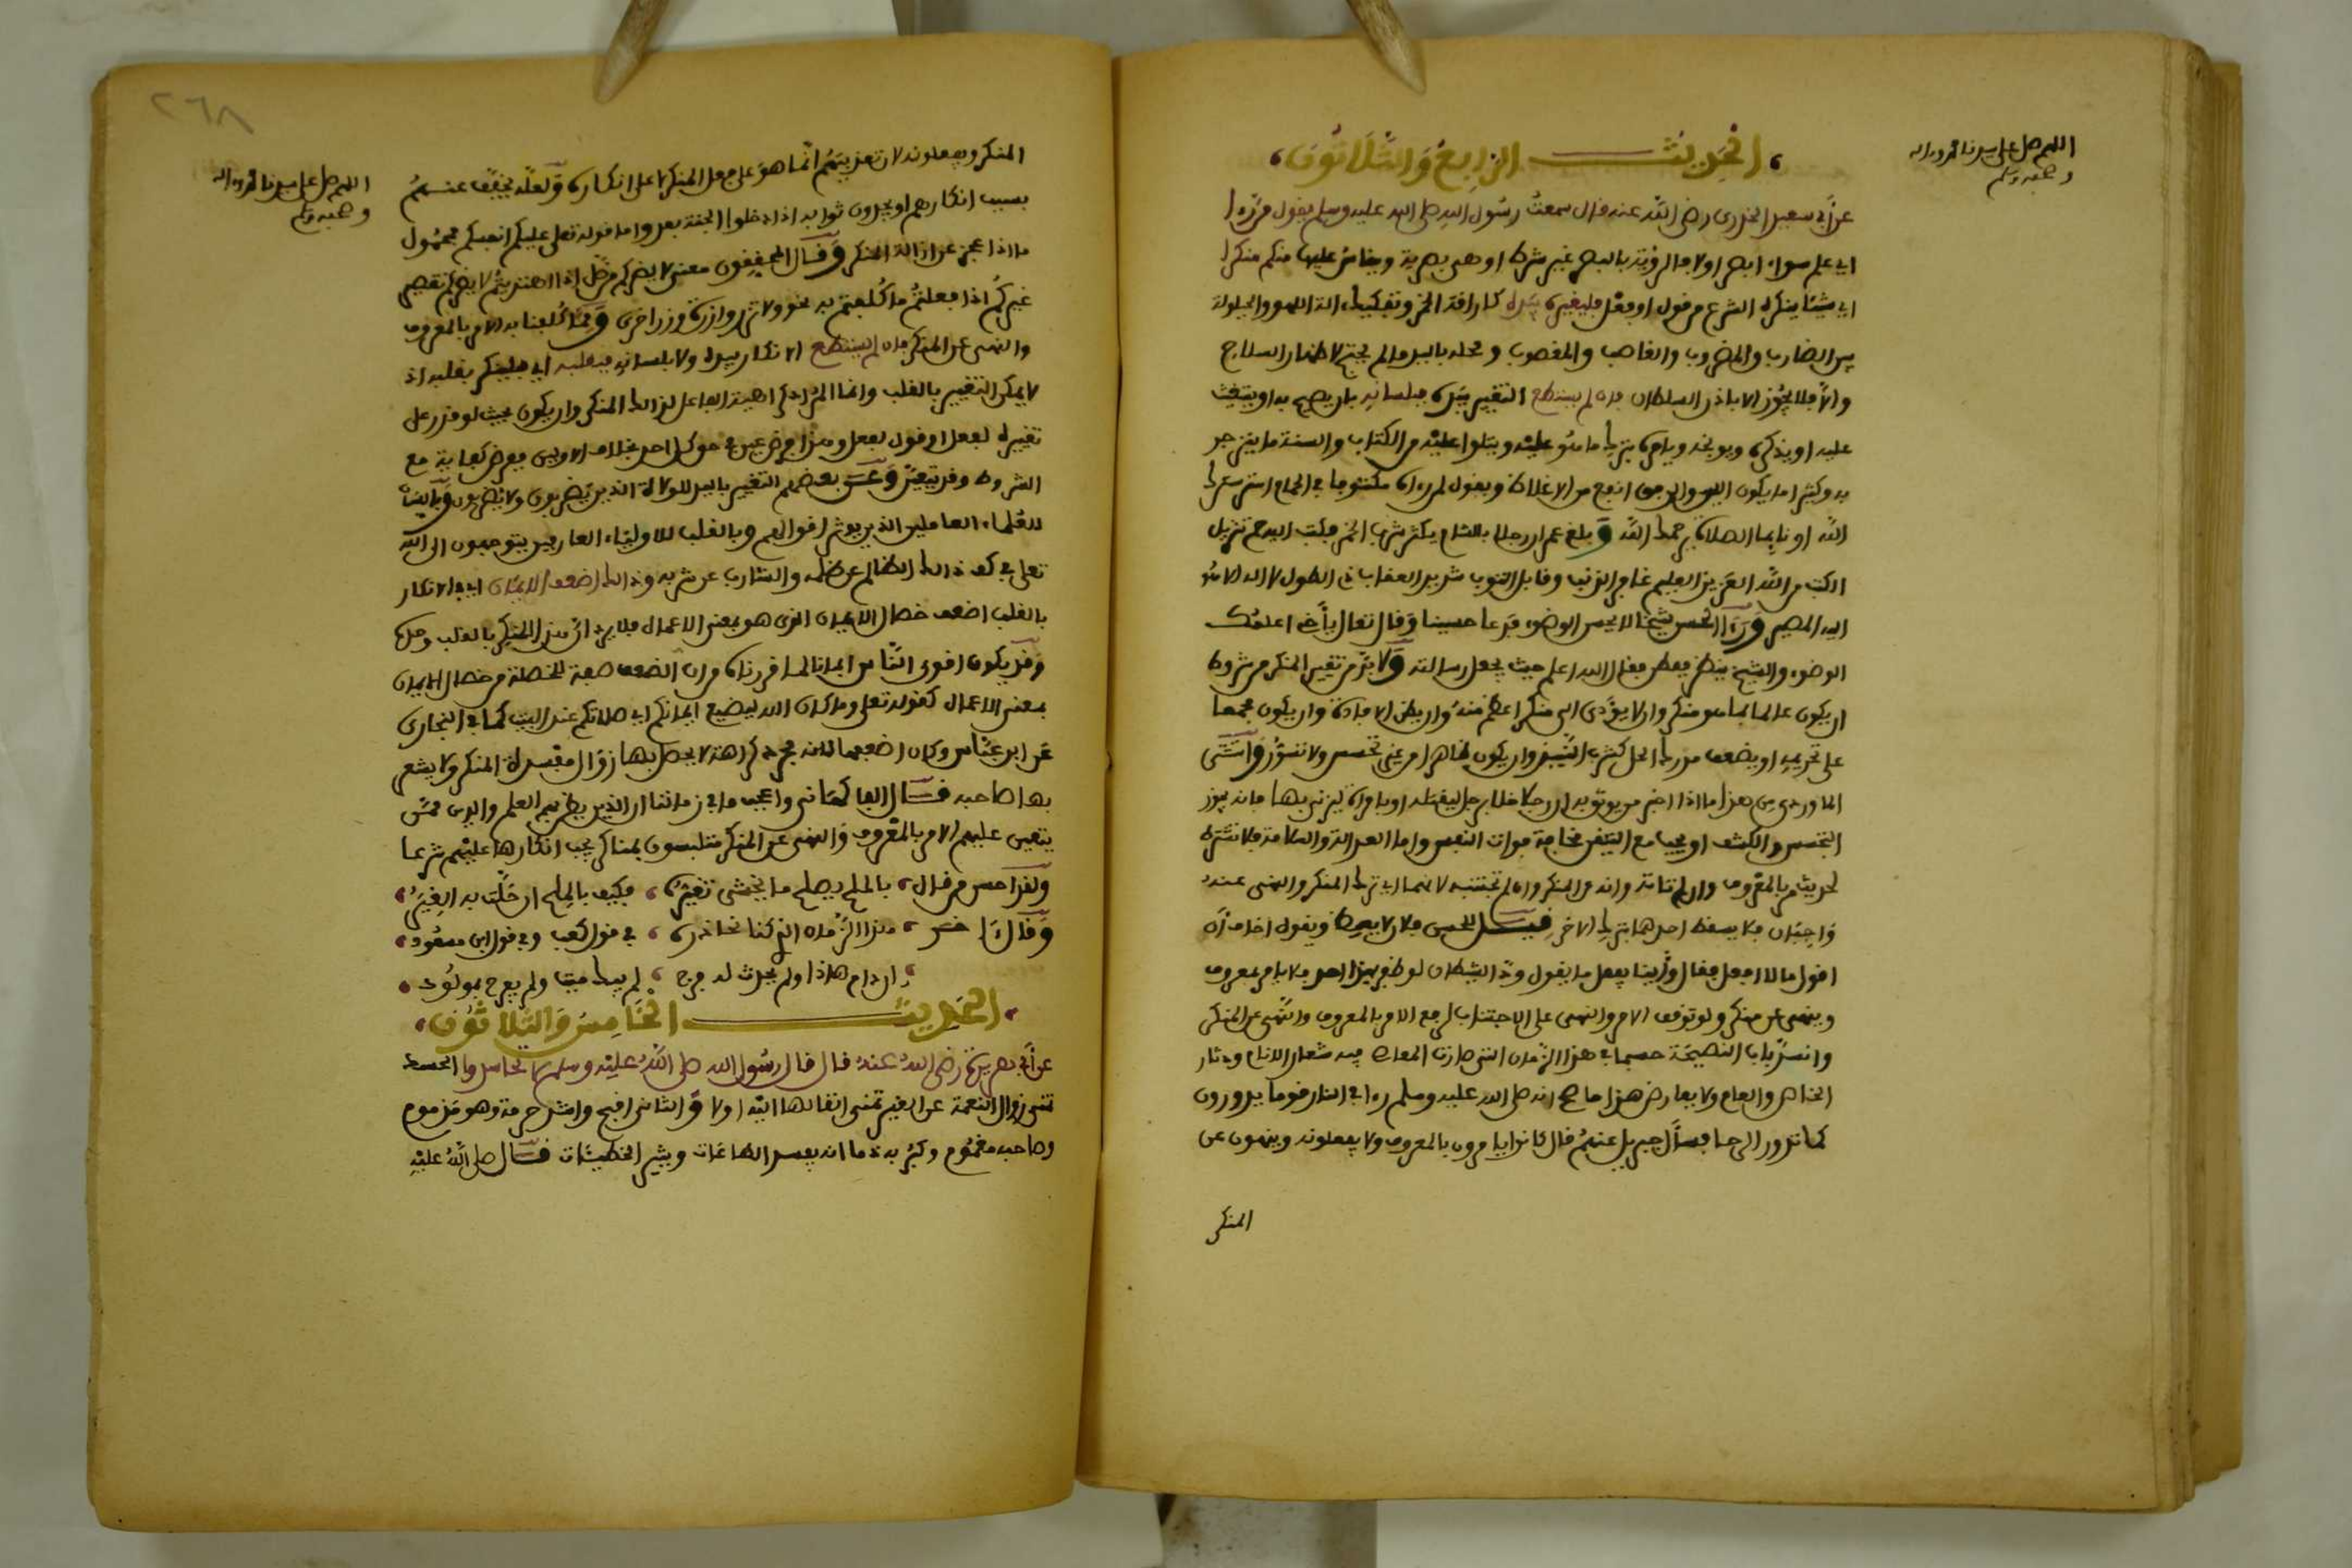 الحديث الرابع والثلاثون
اللهم صل على سيدنا محمد وءاله
وصحبه وسلم
عن أبي سعيد الخدري رضي الله عنه قال سمعت رسول الله صلى الله عليه وسلم يقول من رءا
اي علم سواء ابصر اولا فالرؤية بالبصر غير شرط او هي بصرية ويقاس عليها منكم منكرا
اي شيئا ينكره الشرع من قول او فعل فليغيره بيده كاراقة الخمر وتفكيك ءالة اللهو والحيلولة
بين الضارب والمضروب والغاصب والمغصوب ومحله باليد ما لم يحتج لاظهار السلاح
والا فلا يجوز الا باذن السلطان فان لم يستطع التغيير بيده فبلسانه بان يصيح به او يستغيث
عليه او يذكره ويوبخه ويامره بترك ما هو عليه ويتلوا عليه من الكتاب والسنة ما ينزجر
به وكثيرا ما يكون اللين والرفق انفع من الاغلاظ ويقول لمن رءاه مكشوفا في الحمام استر سترك
الله او نايما الصلاة يرحمك الله وبلغ عمر ان رجلا بالشام يكثر شرب الخمر فكتب اليه حم تنزيل
الكتاب من الله العزيز العليم غافر الذنب وقابل التوب شديد العقاب ذي الطول لا اله الا هو
اليه المصير ورءا الحسن شيخا لا يحسن الوضوء فدعا حسينا وقال تعال يا أخي اعلمك
الوضوء والشيخ ينظر ففطن فقال الله اعلم حيث يجعل رسالته ولا بد من تغيير المنكر من شروط
ان يكون عالما بما هو منكر وان لا يؤدي الى منكر اعظم منه وان يظن الافادة وان يكون مجمعا
على تحريمه او يضعف مدرك الحل كشرب النبيذ وان يكون ظاهرا من غير تجسس ولا تسور واستثنى
الماوردي من هذا ما اذا اخبر من يوثق به ان رجلا خلا برجل ليقتله او بامراة ليزني بها فانه يجوز
التجسس والكشف او يجب مع التيقن مخافة فوات النفس واما العدالة والسلامة فلا تشترط
لحديث مر بالمعروف وان لم تاته وانه عن المنكر وان لم تجتنبه لانهما اي ترك المنكر والنهي عنه
واجبان فلا يسقط احدهما بترك الاخر فيل للحسن فلان لا يعظ ويقول اخاف ان
اقول ما لا افعل فقال وأينا يفعل ما يقول ود الشيطان لو ظفر بهذا احد فلا يامر بمعروف
وينهى عن منكر ولو توقف الامر والنهي على الاجتناب لرفع الامر بالمعروف والنهي عن المنكر
وانسد باب النصيحة حسيما في هذا الزمان التي صارت المعاصي فيه شعار الانام ودثار
الخاص والعام ولا يعارض هذا ما صح انه صلى الله عليه وسلم رءا في النار قوما يدورون
كما تدور الرحا فسأل جبريل عنهم قال كانوا يامرون بالمعروف ولا يفعلونه وينهون عن
المنكر
٢٦٨
اللهم صل على سيدنا محمد وءاله
وصحبه وسلم
المنكر ويفعلونه لان تعذيبهم انما هو على فعل المنكر لا على انكاره ولعله يخفف عنهم
بسبب انكارهم او يجدون ثوابه اذا دخلوا الجنة بعد واما قوله تعلى عليكم انفسكم فمحمول
ما اذا عجز عن ازالة المنكر وقال المحققون معنى لا يضركم من ضل اذا اهتديتم لا يضركم تقصير
غيركم اذا فعلتم ما كلفتم به نحو ولا تزر وازرة وزر اخرى ومما كلفنا به الامر بالمعروف
والنهي عن المنكر فان لم يستطع الانكار بيده ولا بلسانه فبقلبه اي فلينكر بقلبه اذ
لا يمكن التغيير بالقلب وانما المراد كراهية الفاعل لذالك المنكر وان يكون بحيث لو قدر على
تغييره لفعل او قول لفعل وهذا فرض عين في حق كل احد بخلاف الاولين ففرض كفاية مع
الشروط وقد يتعين وعن بعضهم التغيير باليد للولاة الذين يضربون ولا يضربون وباللسان
للعلماء العاملين الذين يوثر اقوالهم وبالقلب للاولياء العارفين يتوجهون الى الله
تعلى في كف ذالك الظالم عن ظلمه والشارب عن شربه وذالك اضعف الايمان اي الانكار
بالقلب اضعف خصال الايمان الذي هو بمعنى الاعمال فلا يرد ان هذا المنكر بالقلب وحده
وقد يكون اقوى الناس ايمانا لما قررناه من ان الضعف صفة للخصلة من خصال الايمان
بمعنى الاعمال كقوله تعلى وما كان الله ليضيع ايمانكم اي صلاتكم عند البيت كما في البخاري
عن ابن عباس وكان اضعفها لانه مجرد كراهة لا يحصل بها زوال مفسدة المنكر ولا يشعر
بها صاحبه قال الفاكهاني واعجب ما في زماننا ان الذين يظن بهم العلم والدين ممن
يتعين عليهم الامر بالمعروف والنهي عن المنكر متلبسون بمناكر يجب انكارها عليهم شرعا
ولقد احسن من قال بالملح يصلح ما يخشى تغيره فكيف بالملح ان حلت به الغير
وقال ءاخر هذا الزمان الذي كنا نحاذره في قول كعب وفي قول ابن مسعود
ان دام هاذا ولم يحدث له فرج لم يبك ميت ولم يفرح بمولود
الحديث الخامس والثلاثون
عن أبي هريرة رضي الله عنه قال قال رسول الله صلى الله عليه وسلم لا تحاسدوا الحسد
تمنى زوال النعمة عن الغير تمنى انتقالها اليه اولا والثاني اقبح واشد حرمة وهو مذموم
وصاحبه مغموم وكفى به ذما انه يفسد الطاعات ويثير الخطيئات قال صلى الله عليه